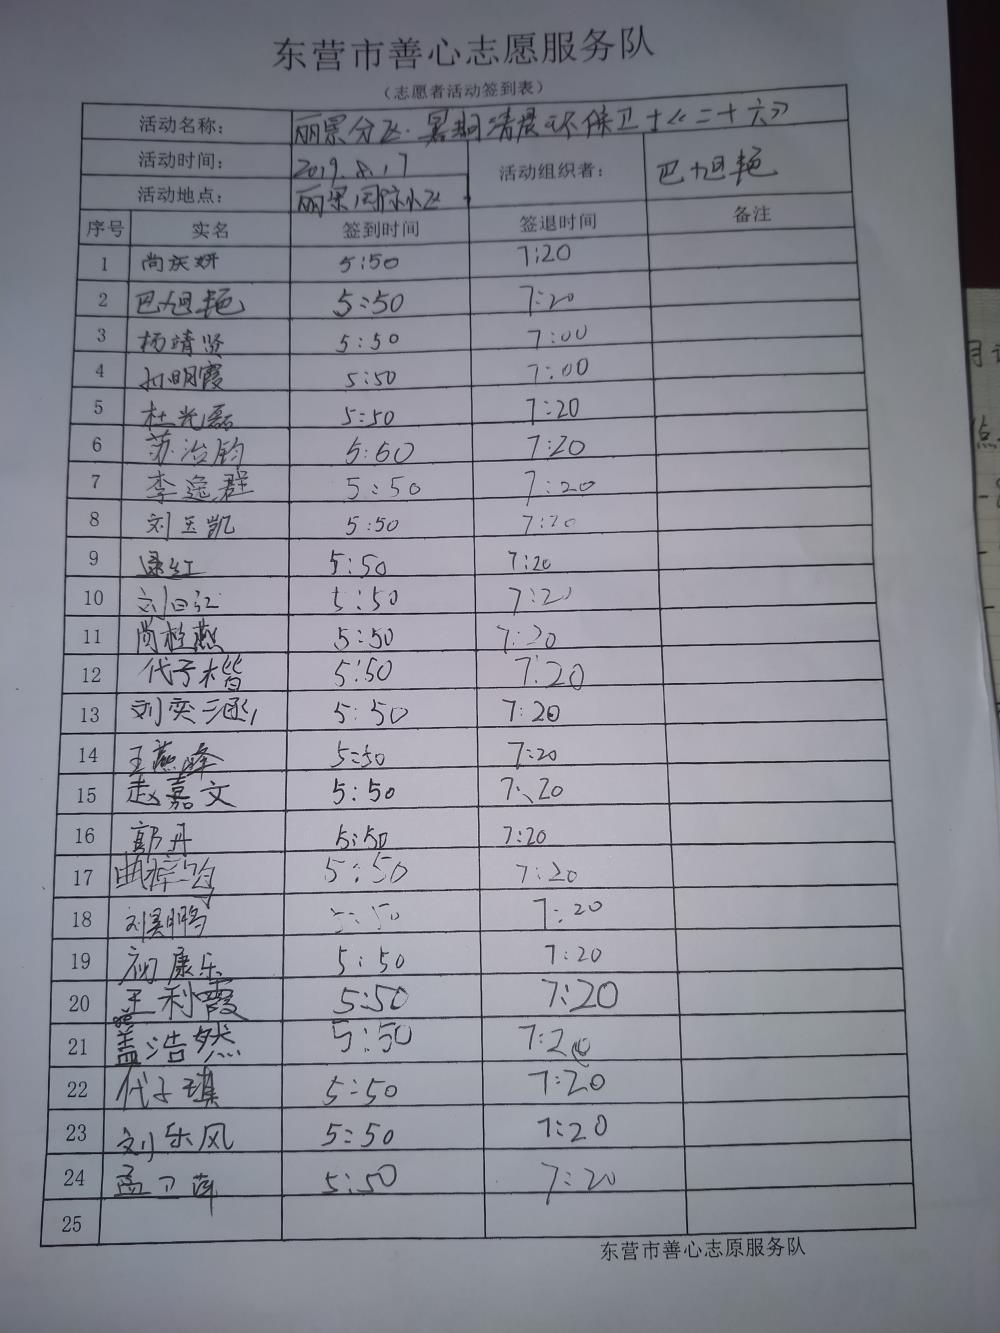 东营市善心志愿服务队
（志愿者活动签到表）
活动名称： 丽景分队·暑期清晨环保卫士《二十六》
活动时间： 2019.8.17 活动组织者： 巴旭艳
活动地点： 丽景国际小区
序号 实名 签到时间 签退时间 备注
1 尚庆妍 5:50 7:20
2 巴旭艳 5:50 7:20
3 杨靖贤 5:50 7:00
4 孙明霞 5:50 7:00
5 杜光磊 5:50 7:20
6 苏治钧 5:60 7:20
7 李逸群 5:50 7:20
8 刘玉凯 5:50 7:20
9 5:50 7:20
10 刘曰江 5:50 7:20
11 尚桂燕 5:50 7:20
12 代子楷 5:50 7:20
13 刘奕涵 5:50 7:20
14 王燕峰 5:50 7:20
15 赵嘉文 5:50 7:20
16 郭丹 5:50 7:20
17 5:50 7:20
18 刘昊鹏 5:50 7:20
19 初康乐 5:50 7:20
20 王利霞 5:50 7:20
21 盖浩然 5:50 7:20
22 代子琪 5:50 7:20
23 刘乐风 5:50 7:20
24 孟卫萍 5:50 7:20
25
东营市善心志原服务队